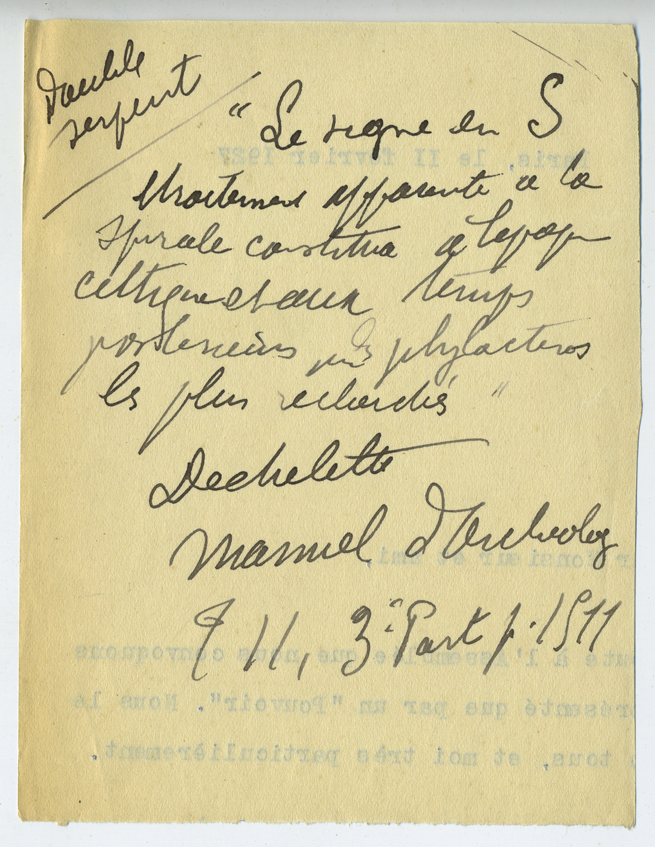 Double
serpent
"Le signe en S
étroitement apparenté à la
spirale constitua à l'époque
celtique et aux temps
postérieurs un des phylactères
les plus recherchés "
Dechelette
Manuel d'Archeolog
T II, 3e Part p. 1311
Paris, le II février 1927
Monsieur et ami,
à l'Assemblée que nous convoquons
présenté que par un "Pouvoir". Nous le
tous, et moi très particulièrement.